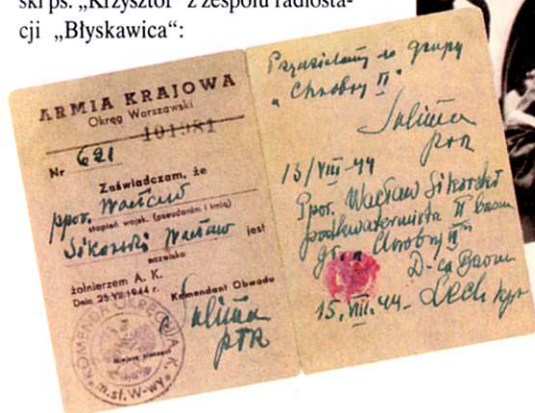 ski ps. „Krzysztof” z zespołu radiosta-
cji „Błyskawica“:
ARMIA KRAJOWA
Okręg Warszawski
101981
Nr 621
Zaświadczam, że
ppor. Wacław
stopień wojsk. (pseudonim i imię)
Sikorski Wacław jest
nazwisko
żołnierzem A. K.
Dnia 25.VII.1944 r.
Komendant Obwodu
Saliwa
ptk
KOMENDA OKRĘGU A.K.
m.st. W-wy
Miejsce pieczęci
Przydzielony do grupy
"Chrobry II"
Saliwa
ptk
13/VIII-44
Ppor. Wacław Sikorski
podkwatermistrz II baonu
gr. „Chrobry II"
D-ca Baonu
15.VIII.44. Lech kpt